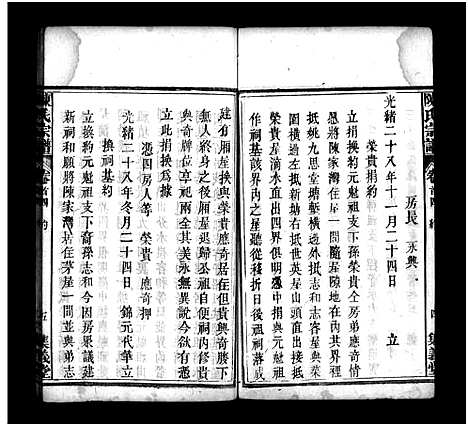 陳氏宗譜 卷首四 約
房長 永興
光緒二十八年十一月二十四日 立
榮貴捐約
立捐換約元魁祖支下孫榮貴仝房弟應奇情
愿將陳家灣住屋一間隨屋隙地在內其界前
抵純九思堂塘墊橫外抵志和志容星與立
圍橫過左抵新塘右抵世英屋後抵元魁祖
土屋後為界四界俱明憑中捐與元魁祖
作祠基該界內之星聽從移折日後祖祠落成
建有廂屋換與榮貴應奇居住但貴與奇勝下
無人終身之後廂星退歸仝祖自便祠內修貴
與奇牌位享祀詞仝其美永無異說今欲有憑
立此捐換為據
憑四房人等 榮貴 應奇押
光緒二十八年冬月二十四日 錦元代筆立
換基約
立換基約元魁祖支下裔孫志和今因房眾議建
新祠和願將陳家灣居住茅星一間並與弟志
陳氏宗譜 卷首四 約
五 集義堂